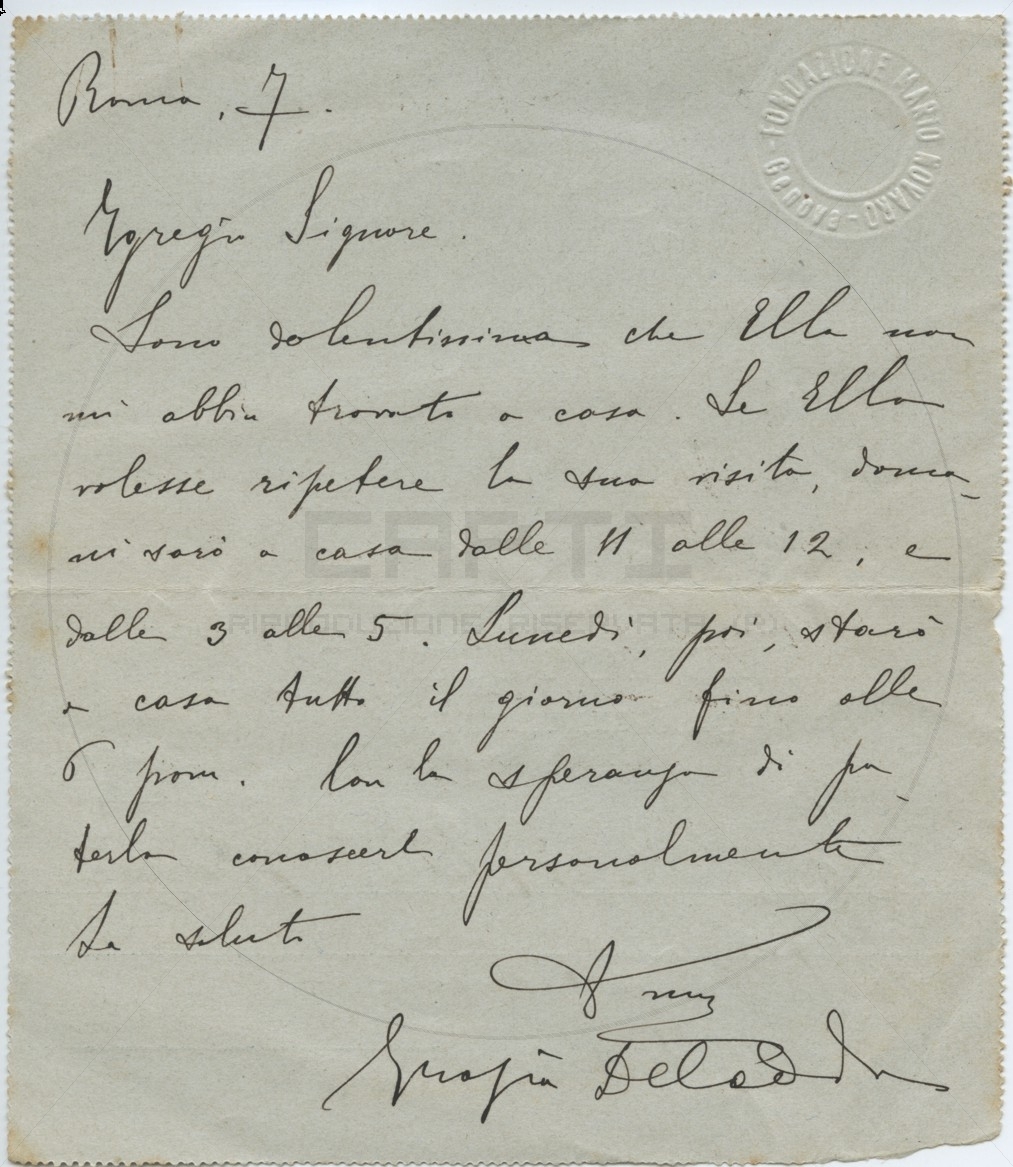 Roma, 7.
FONDAZIONE MARIO NOVARO -
Egregio Signore.
Sono dolentissima che Ella non
mi abbia trovato a casa. Se Ella
volesse ripetere la sua visita, doma-
ni sarò a casa dalle 11 alle 12, e
CAFTI
dalle 3 alle 5. Lunedì, poi, starò
RIPRODUZIONE RISERVATA
a casa tutto il giorno fino alle
6 pom. Con la speranza di po-
terla conoscere personalmente
La saluto
Grazia Deledda